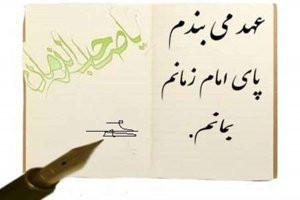 عهد می بندم
پای امام زمانم
بمانم.
یا صاحب الزمان